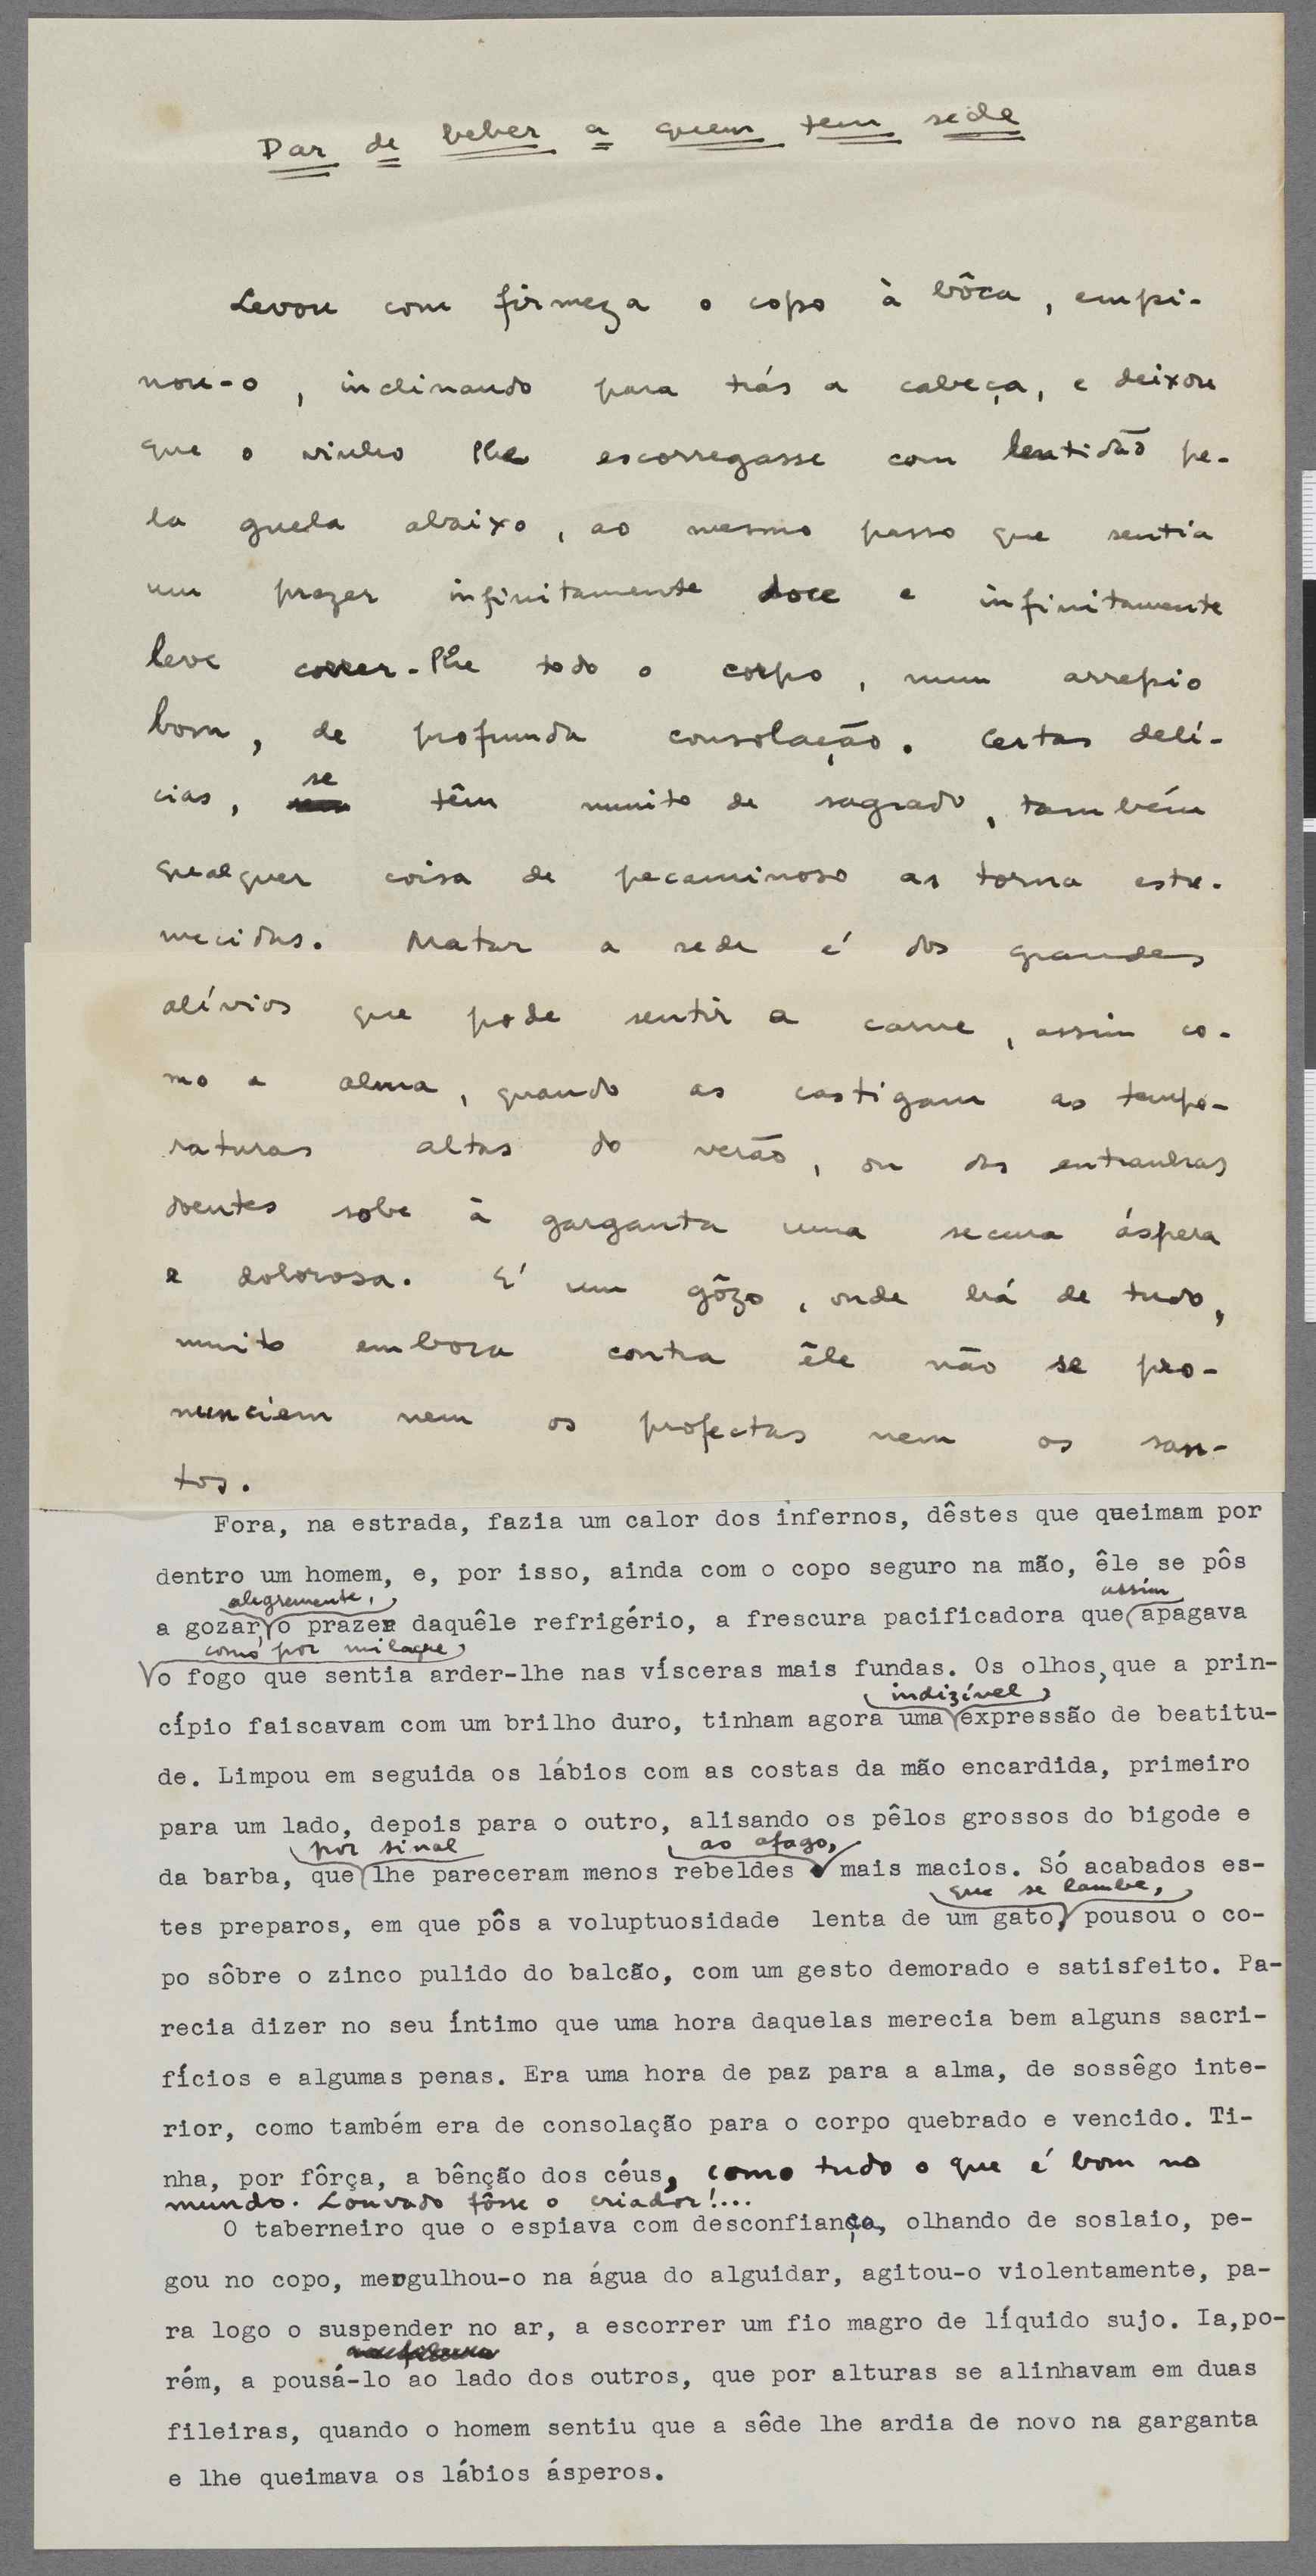 Dar de beber a quem tem sede
Levou com firmeza o copo à bôca, empi-
nou-o, inclinando para trás a cabeça, e deixou
que o vinho lhe escorregasse com lentidão pe-
la guela abaixo, ao mesmo passo que sentia
um prazer infinitamente doce e infinitamente
leve correr-lhe todo o corpo, num arrepio
bom, de profunda consolação. Certas delí-
se
cias, têm muito de sagrado, também
qualquer coisa de pecaminoso as torna estre-
mecidas. Matar a sede é dos grandes
alívios que pode sentir a carne, assim co-
mo a alma, quando as castigam as tempe-
raturas altas do verão, ou das entranhas
doentes sobe à garganta uma secura áspera
e dolorosa. É um gôzo, onde há de tudo,
muito embora contra êle não se pro-
nunciem nem os profectas nem os san-
tos.
Fora, na estrada, fazia um calor dos infernos, dêstes que queimam por
dentro um homem, e, por isso, ainda com o copo seguro na mão, êle se pôs
alegremente, assim
a gozar o prazer daquêle refrigério, a frescura pacificadora que apagava
como por milagre
o fogo que sentia arder-lhe nas vísceras mais fundas. Os olhos, que a prin-
indizível
cípio faiscavam com um brilho duro, tinham agora uma expressão de beatitu-
de. Limpou em seguida os lábios com as costas da mão encardida, primeiro
para um lado, depois para o outro, alisando os pêlos grossos do bigode e
por sinal ao afago,
da barba, que lhe pareceram menos rebeldes mais macios. Só acabados es-
que se lambe,
tes preparos, em que pôs a voluptuosidade lenta de um gato, pousou o co-
po sôbre o zinco pulido do balcão, com um gesto demorado e satisfeito. Pa-
recia dizer no seu íntimo que uma hora daquelas merecia bem alguns sacri-
fícios e algumas penas. Era uma hora de paz para a alma, de sossêgo inte-
rior, como também era de consolação para o corpo quebrado e vencido. Ti-
nha, por fôrça, a bênção dos céus, como tudo o que é bom no
mundo. Louvado fôsse o criador!...
O taberneiro que o espiava com desconfiança, olhando de soslaio, pe-
gou no copo, mergulhou-o na água do alguidar, agitou-o violentamente, pa-
ra logo o suspender no ar, a escorrer um fio magro de líquido sujo. Ia, po-
rém, a pousá-lo ao lado dos outros, que por alturas se alinhavam em duas
fileiras, quando o homem sentiu que a sêde lhe ardia de novo na garganta
e lhe queimava os lábios ásperos.